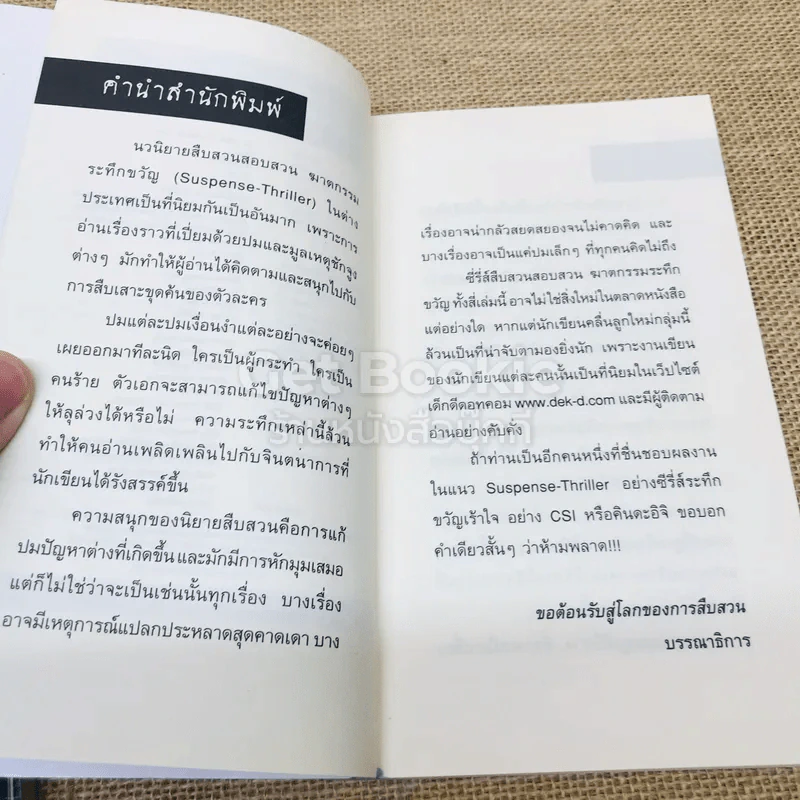 คำนำสำนักพิมพ์
นวนิยายสืบสวนสอบสวน ฆาตกรรม
ระทึกขวัญ (Suspense-Thriller) ในต่าง
ประเทศเป็นที่นิยมกันเป็นอันมาก เพราะการ
อ่านเรื่องราวที่เปี่ยมด้วยปมและมูลเหตุชักจูง
ต่างๆ มักทำให้ผู้อ่านได้คิดตามและสนุกไปกับ
การสืบเสาะขุดค้นของตัวละคร
ปมแต่ละปมเงื่อนงำแต่ละอย่างจะค่อยๆ
เผยออกมาทีละนิด ใครเป็นผู้กระทำ ใครเป็น
คนร้าย ตัวเอกจะสามารถแก้ไขปัญหาต่างๆ
ให้ลุล่วงได้หรือไม่ ความระทึกเหล่านี้ล้วน
ทำให้คนอ่านเพลิดเพลินไปกับจินตนาการที่
นักเขียนได้รังสรรค์ขึ้น
ความสนุกของนิยายสืบสวนคือการแก้
ปมปัญหาต่างที่เกิดขึ้นและมักมีการหักมุมเสมอ
แต่ก็ไม่ใช่ว่าจะเป็นเช่นนั้นทุกเรื่อง บางเรื่อง
อาจมีเหตุการณ์แปลกประหลาดสุดคาดเดา บาง
เรื่องอาจน่ากลัวสยดสยองจนไม่คาดคิด และ
บางเรื่องอาจเป็นแค่ปมเล็กๆ ที่ทุกคนคิดไม่ถึง
ซีรี่ส์สืบสวนสอบสวน ฆาตกรรมระทึก
ขวัญ ทั้งสี่เล่มนี้ อาจไม่ใช่สิ่งใหม่ในตลาดหนังสือ
แต่อย่างใด หากแต่นักเขียนคลื่นลูกใหม่กลุ่มนี้
ล้วนเป็นที่น่าจับตามองยิ่งนัก เพราะงานเขียน
ของนักเขียนแต่ละคนนั้นเป็นที่นิยมในเว็ปไซต์
เด็กดีดอทคอม www.dek-d.com และมีผู้ติดตาม
อ่านอย่างคับคั่ง
ถ้าท่านเป็นอีกคนหนึ่งที่ชื่นชอบผลงาน
ในแนว Suspense-Thriller อย่างซีรี่ส์ระทึก
ขวัญเร้าใจ อย่าง CSI หรือคินดะอิจิ ขอบอก
คำเดียวสั้นๆ ว่าห้ามพลาด!!!
ขอต้อนรับสู่โลกของการสืบสวน
บรรณาธิการ
Get Bookie